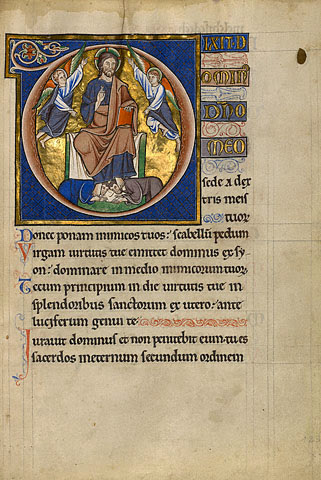 IXIT D
OMIN
DNO
MEO
sede a dex
tris meis
tuor
Donec ponam inimicos tuos: scabellu pedum
Virgam virtutis tue emittet dominus ex sy
on: dominare in medio inimicorum tuor
Tecum principium in die virtutis tue in
splendoribus sanctorum ex utero: ante
luciferum genui te
Iuravit dominus et non penitebit eum: tu es
sacerdos ineternum secundum ordinem